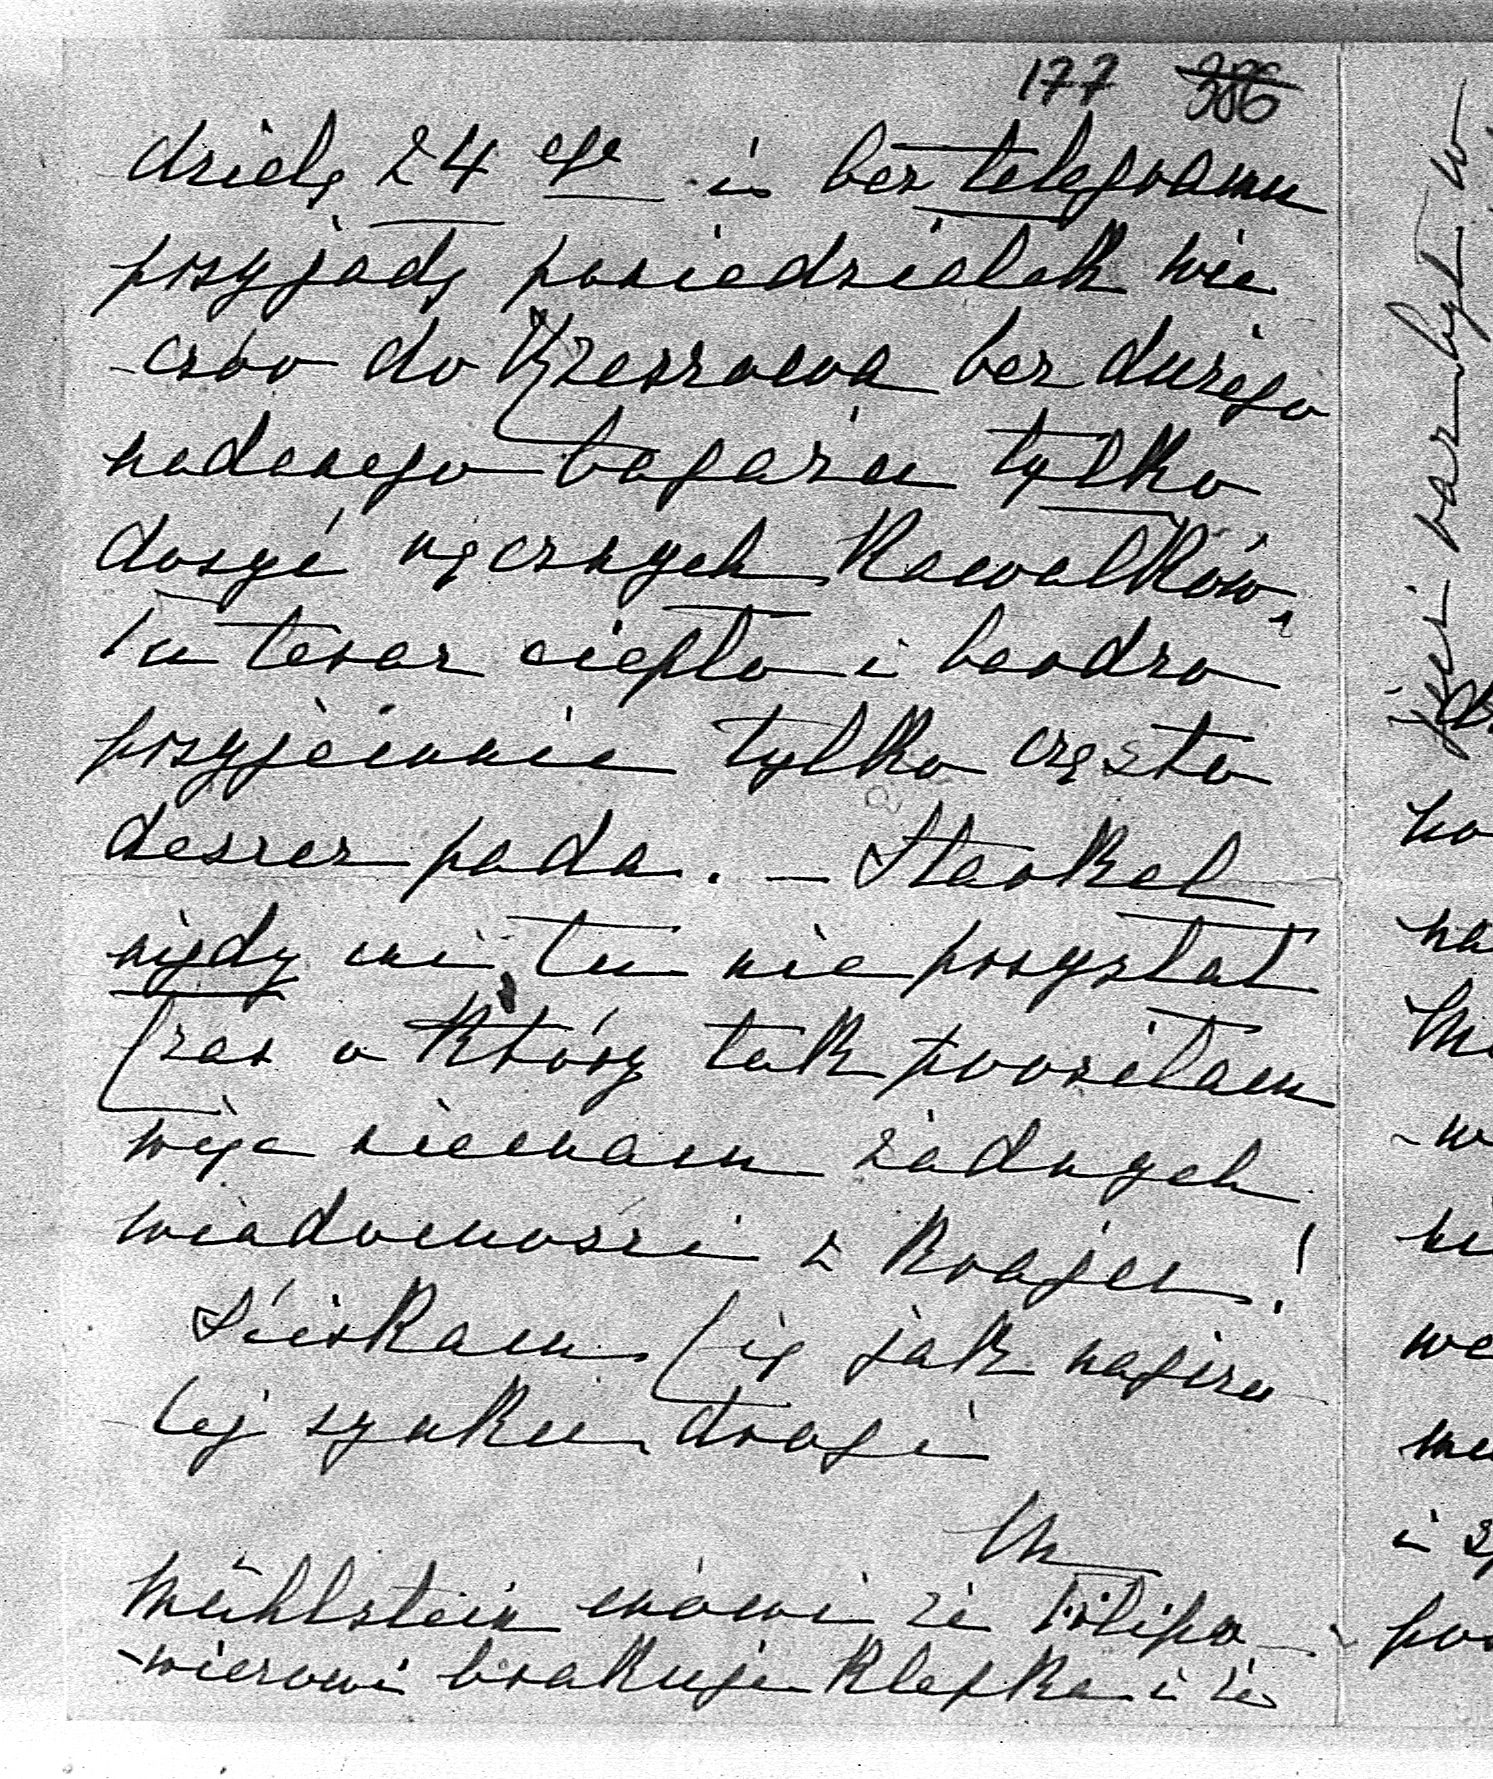 177 386
dzielę 24 ego i bez telegramu
przyjadę poniedziałek wie
-czór do Krzeszowa bez dużego
nadanego bagażu tylko
dosyć ręcznych kawałków,
Tu teraz ciepło i bardzo
przyjemnie tylko często
deszcz pada. — Starkel
nigdy mi tu nie przysłał
raz o który tak prosiłam
więc niemam żadnych
wiadomości z kraju!
Ściskam Cię jak najczu
lej synku drogi
M
Mühlstein mówi że Filipo
-wiczowi brakuje klepka i że
już